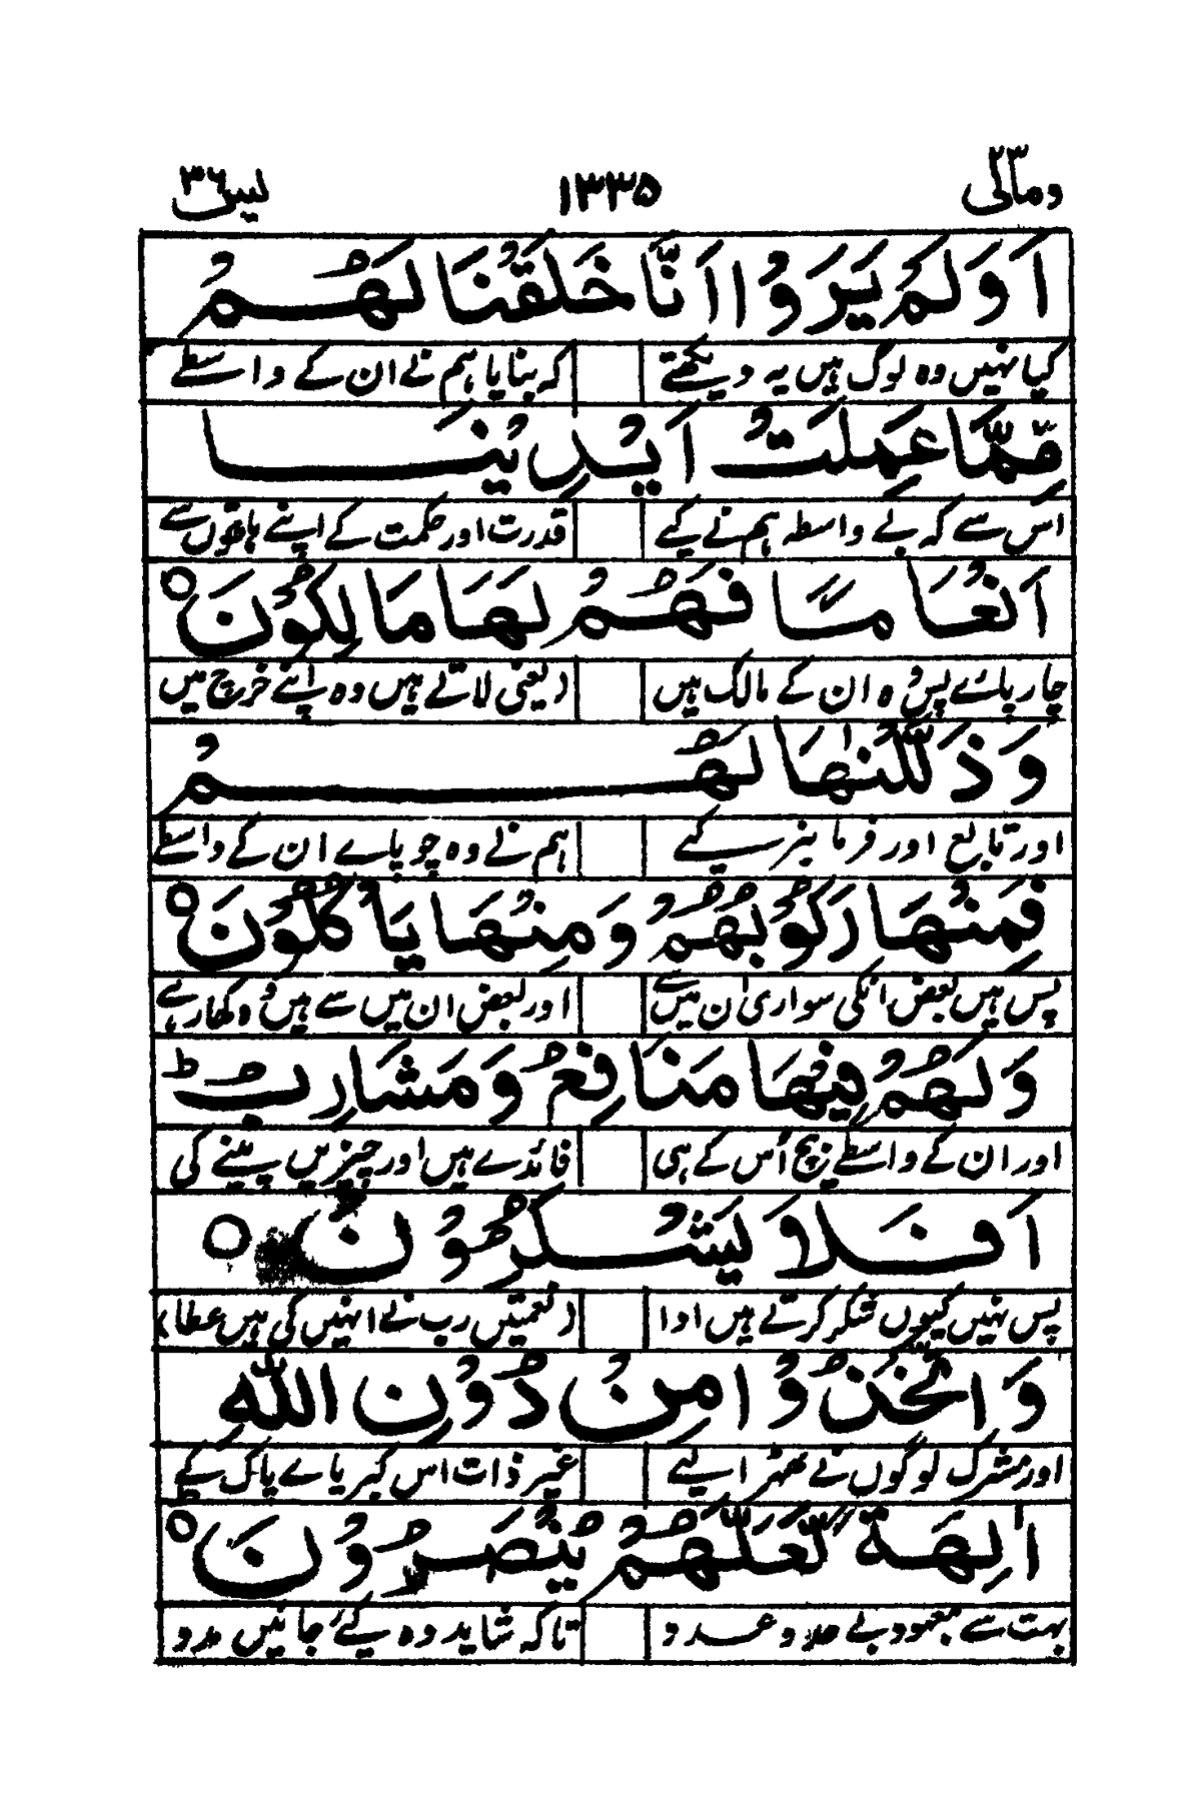 ومالی ٢٣ ١٣٣٥ یٰس ٣٦
اَوَلَمْ يَرَوْا اَنَّا خَلَقْنَا لَهُمْ
کیا نہیں وہ لوگ ہیں یہ دیکھتے کہ بنایا ہم نے ان کے واسطے
مِّمَّا عَمِلَتْ اَيْدِيْنَا
اس سے کہ بے واسطہ ہم نے کیے قدرت اور حکمت کے اپنے ہاتھوں سے
اَنْعَامًا فَهُمْ لَهَا مَالِكُوْنَ ○
چار پائے پس وہ ان کے مالک ہیں (یعنی لاتے ہیں وہ اپنے خرچ میں
وَذَلَّلْنٰهَا لَهُمْ
اور تابع اور فرمانبر کیے ہم نے وہ چوپائے ان کے واسطے
فَمِنْهَا رَكُوْبُهُمْ وَمِنْهَا يَاْكُلُوْنَ ○
پس ہیں بعض انکی سواری ان میں سے اور بعض ان میں سے ہیں وہ کھا رہے
وَلَهُمْ فِيْهَا مَنَافِعُ وَمَشَارِبُ ؕ
اور ان کے واسطے بیچ اُس کے ہی فائدے ہیں اور چیزیں پینے کی
اَفَلَا يَشْكُرُوْنَ ○
پس نہیں کیوں شکر کرتے ہیں ادا (نعمتیں رب نے انہیں کی ہیں عطا)
وَاتَّخَذُوْا مِنْ دُوْنِ اللّٰهِ
اور مشرک لوگوں نے ٹھہرا لیے غیر ذات اس کبریائے پاک کے
اٰلِهَةً لَّعَلَّهُمْ يُنْصَرُوْنَ ○
بہت سے معبود بے حد و عدد و تاکہ شاید وہ کیے جائیں مدد